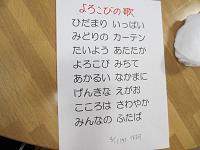 よろこびの歌
ひだまり いっぱい
みどりの カーテン
たいよう あたたか
よろこび みちて
あかるい なかまに
げんきな えがお
こころは さわやか
みんなの ふたば